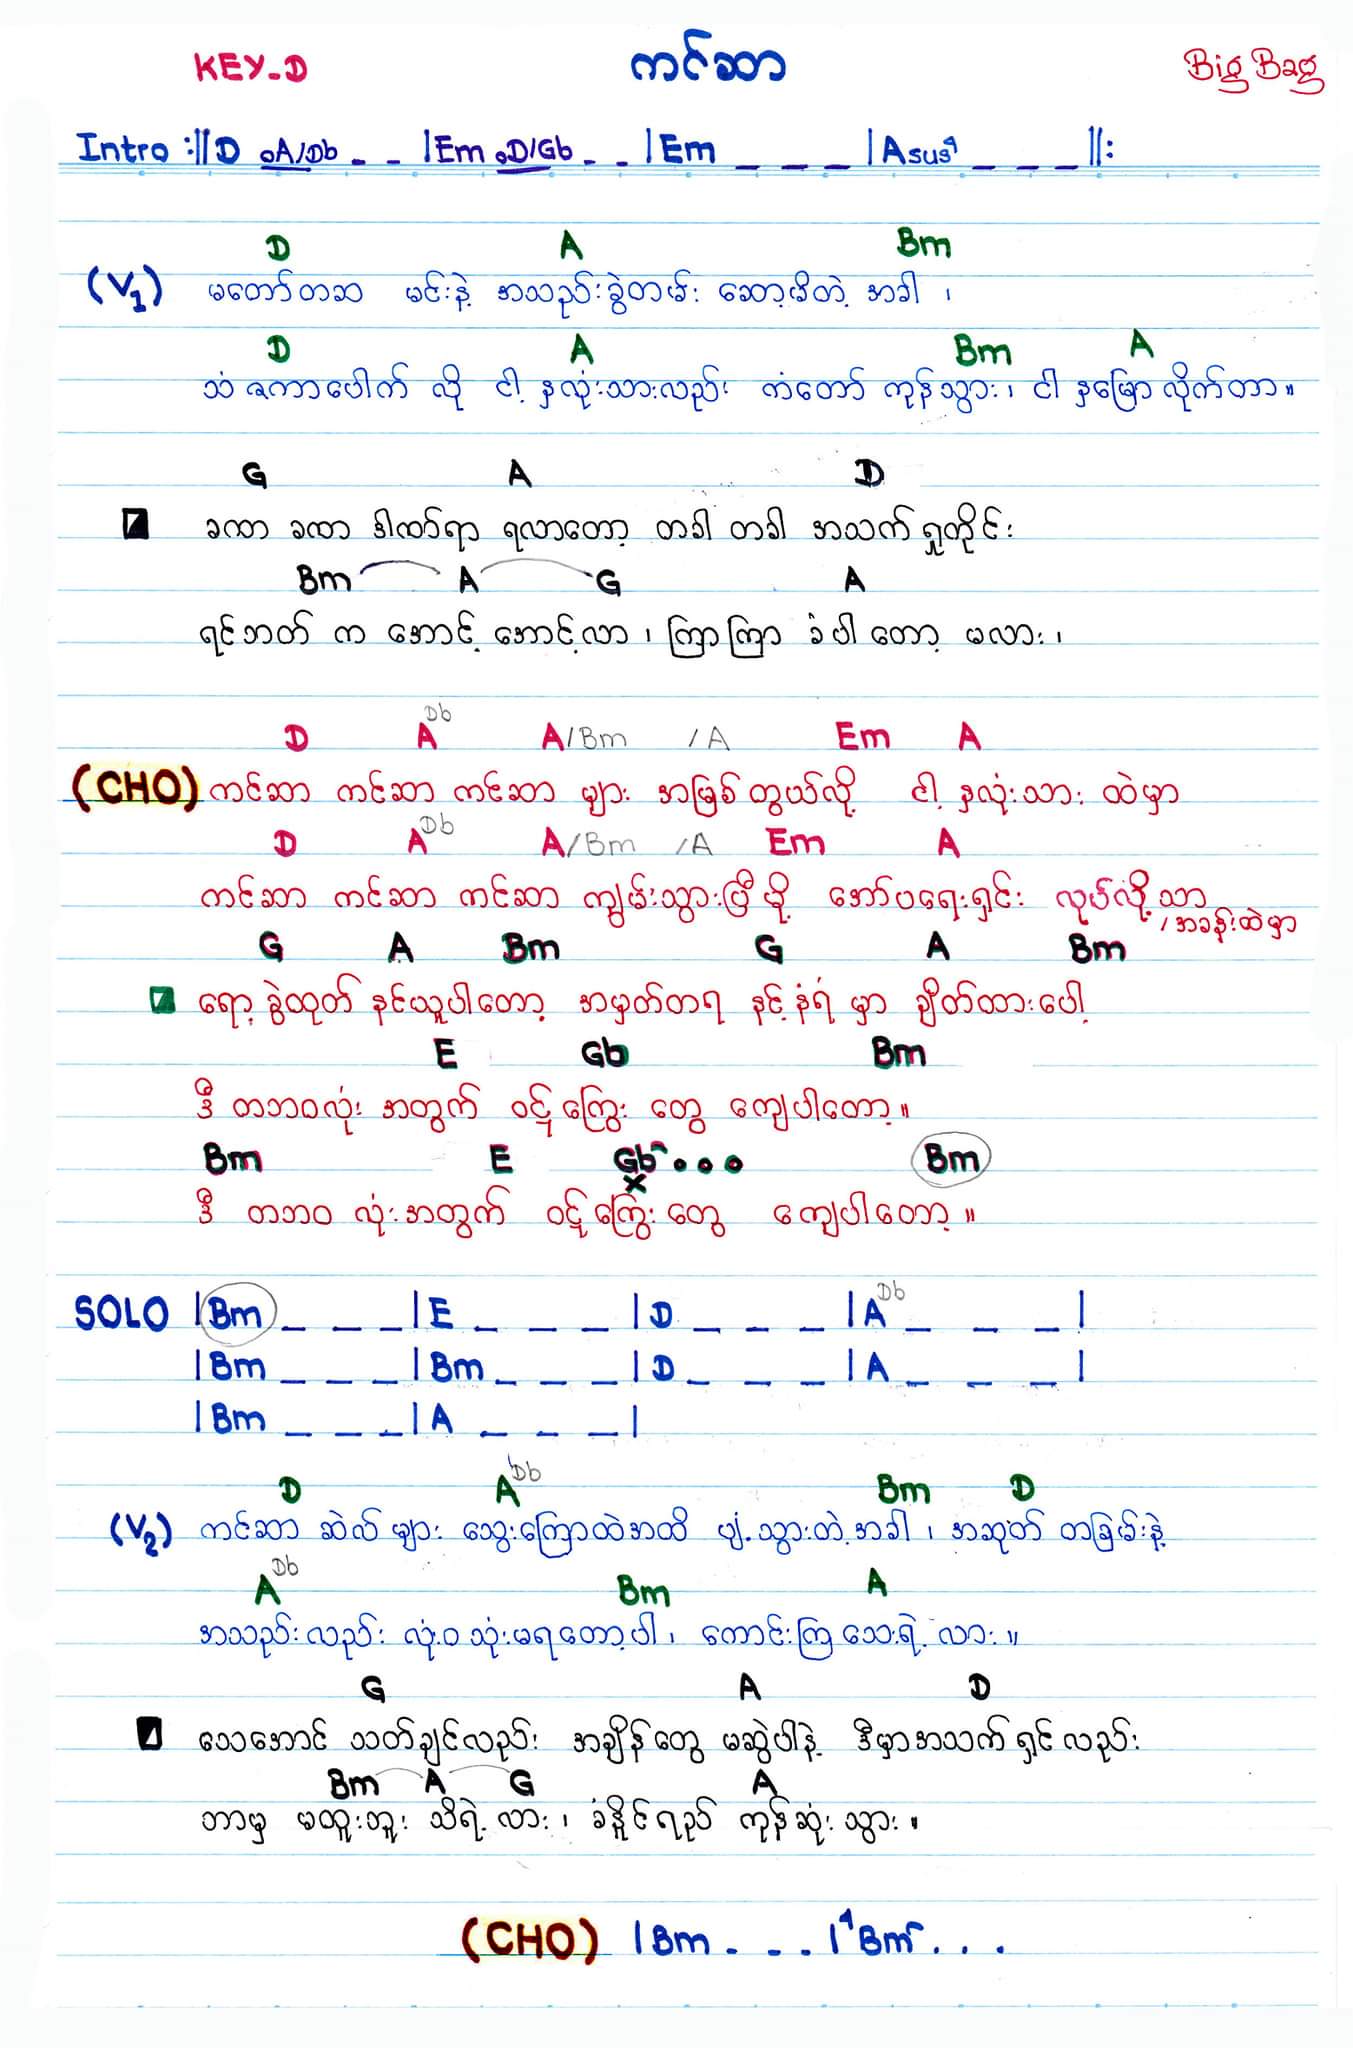 KEY-D ကင်ဆာ Big Bag
Intro :|| D oA/Db - - | Em oD/Gb - - | Em _ _ _ | Asus4 _ _ _ ||:
D A Bm
(V1) မတော်တဆ မင်းနဲ့ အသည်းခွဲတမ်း ဆော့မိတဲ့ အခါ ၊
D A Bm A
သံဇကာပေါက် လို ငါ့ နှလုံးသားလည်း ကံတော် ကုန်သွား၊ ငါ နှမြောလိုက်တာ။
G A D
ခဏ ခဏ ဒါဏ်ရာ ရလာတော့ တခါ တခါ အသက်ရှုတိုင်း
Bm A G A
ရင်ဘတ် က အောင့် အောင့်လာ ၊ ကြာကြာ ခံပါ တော့ မလား ၊
D A Db A/Bm /A Em A
(CHO) ကင်ဆာ ကင်ဆာ ကင်ဆာ များ အမြစ်တွယ်လို့ ငါ့ နှလုံးသား ထဲမှာ
D A Db A/Bm /A Em A
ကင်ဆာ ကင်ဆာ ကင်ဆာ ကျွမ်းသွားပြီ မို့ အော်ပရေးရှင်း လုပ်လို့သာ
/အခန်းထဲမှာ
G A Bm G A Bm
ရော့ ခွဲထုတ် နင်ယူပါတော့ အမှတ်တရ နင့်နံရံ မှာ ချိတ်ထားပေါ့
E Gb Bm
ဒီ တဘဝလုံး အတွက် ဝဋ်ကြွေး တွေ ကျေပါတော့။
Bm E Gb • • • Bm
x
ဒီ တဘဝ လုံးအတွက် ဝဋ်ကြွေး တွေ ကျေပါတော့ ။
SOLO | Bm _ _ _ | E _ _ _ | D _ _ _ | A Db _ _ _ |
| Bm _ _ _ | Bm _ _ _ | D _ _ _ | A _ _ _ |
| Bm _ _ _ | A _ _ _ |
D A Db Bm D
(V2) ကင်ဆာ ဆဲလ် များ သွေးကြောထဲအထိ ပျံ့သွားတဲ့အခါ ၊ အဆုတ် တခြမ်းနဲ့
A Db Bm A
အသည်းလည်း လုံးဝ သုံးမရတော့ပါ ၊ ကောင်းကြ သေးရဲ့ လား ။
G A D
သေအောင် သတ်ချင်လည်း အချိန်တွေ မဆွဲပါနဲ့ ဒီမှာအသက်ရှင်လည်း
Bm A G A
ဘာမှ မထူးဘူး သိရဲ့လား ၊ ခံနိုင်ရည် ကုန်ဆုံး သွား ။
(CHO) | Bm - - - | 4 Bm . . .